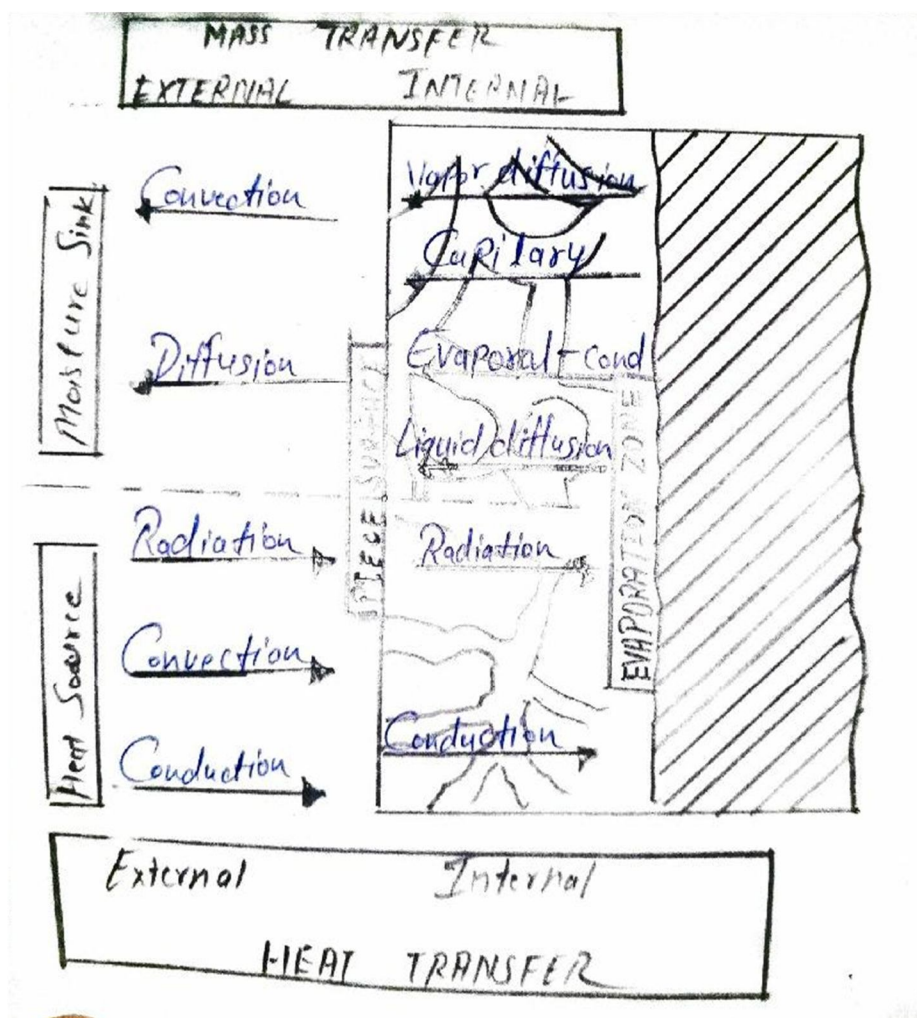 MASS TRANSFER
EXTERNAL INTERNAL
Moisture Sink
Convection
Diffusion
Vapor diffusion
Capilary
Evaporat-cond
Liquid diffusion
PIECE SURFACE
EVAPORATION ZONE
Heat Source
Radiation
Convection
Conduction
Radiation
Conduction
External Internal
HEAT TRANSFER